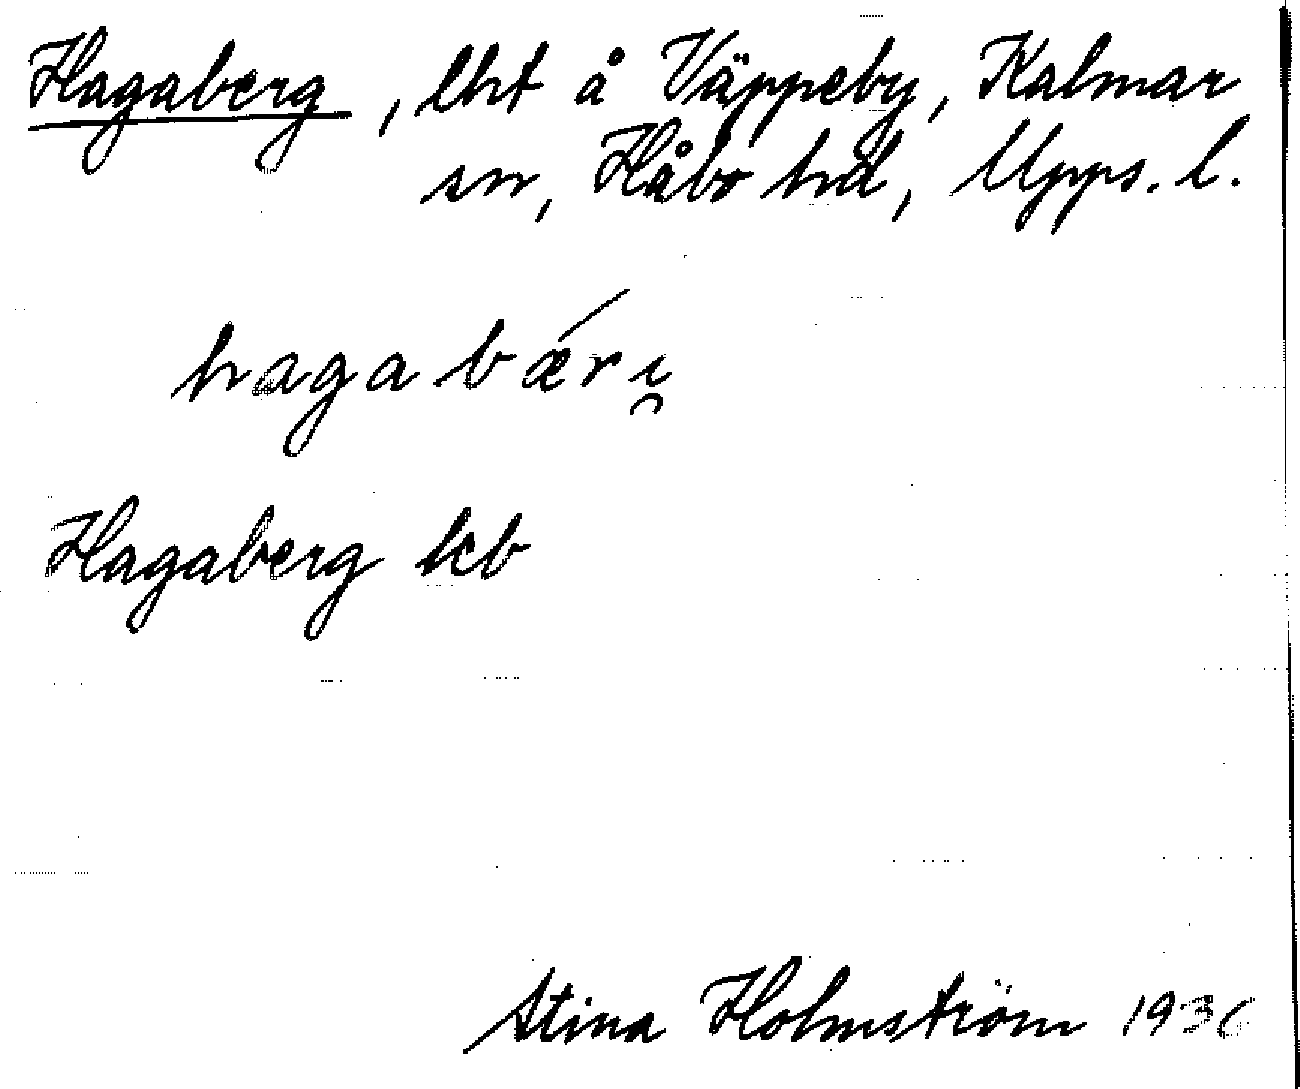 Hagaberg, lht å Väppeby, Kalmar
sn, Håbo hd, Upps. l.
hagabǽri̯
Hagaberg kb
Stina Holmström 1936